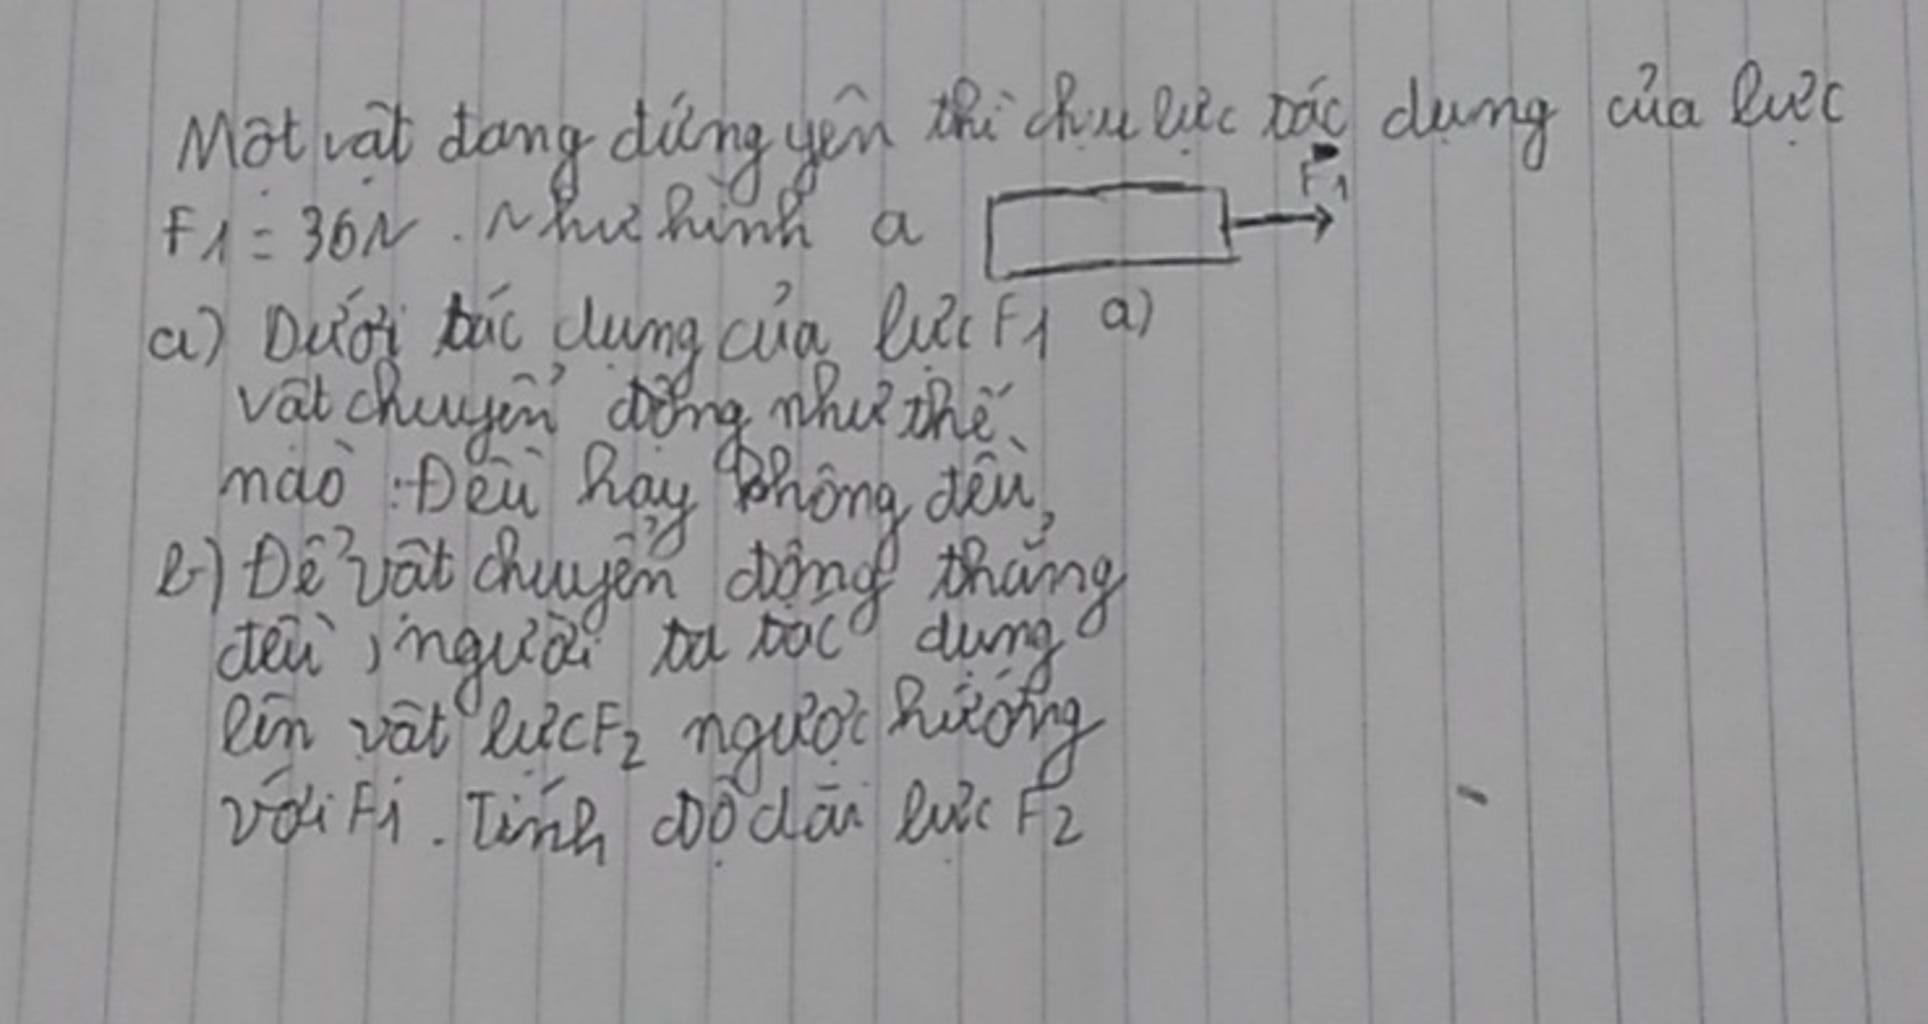 Một vật đang đứng yên thì chịu lực tác dụng của lực
F1 = 36N. Như hình a
F1
a) Dưới tác dụng của lực F1
a)
vật chuyển động như thế
nào: Đều hay không đều,
b) Để vật chuyển động thẳng
đều, người ta tác dụng
lên vật lực F2 ngược hướng
với F1. Tính độ dài lực F2